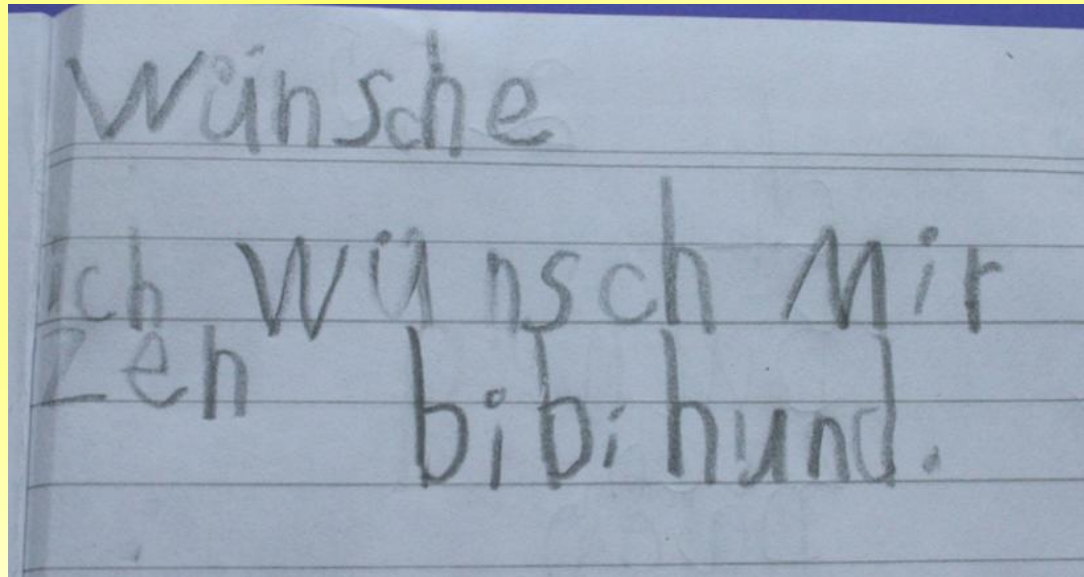 Wünsche
Ich Wünsch Mir
Zen bibihund.